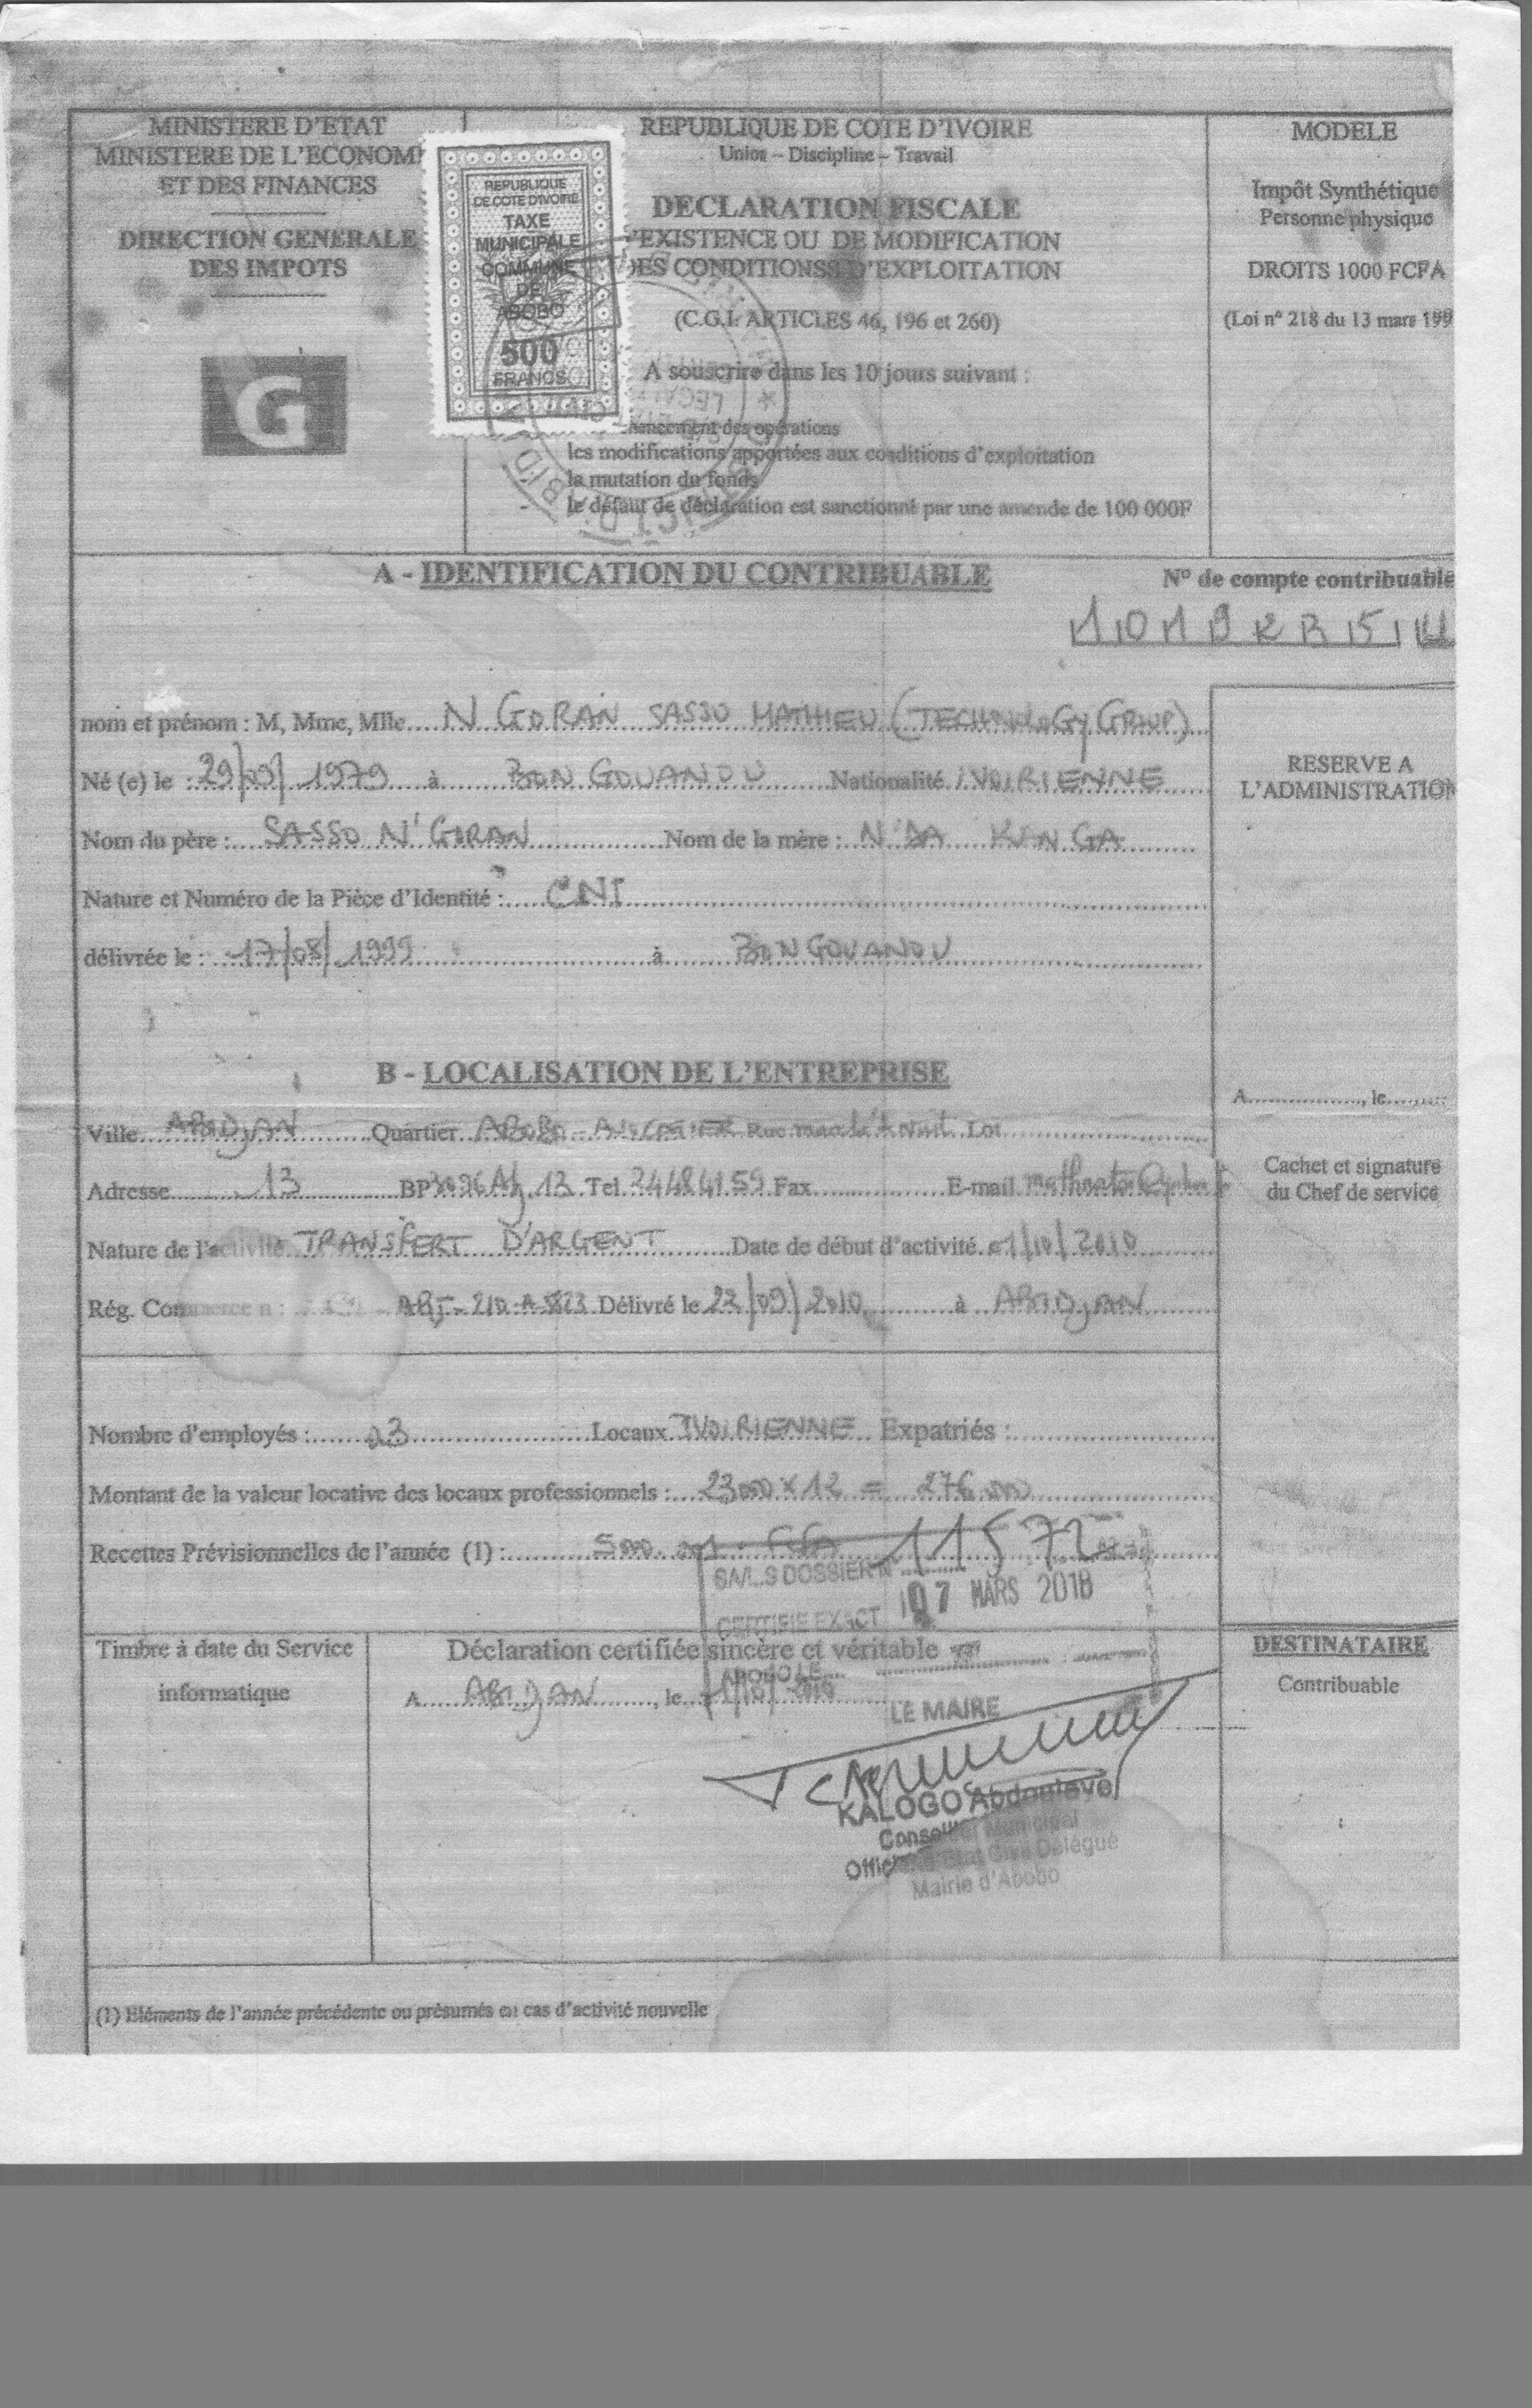 MINISTERE D'ETAT
MINISTERE DE L'ECONOMI
ET DES FINANCES
DIRECTION GENERALE
DES IMPOTS
G
REPUBLIQUE
DE COTE D'IVOIRE
TAXE
MUNICIPALE
COMMUNE
DE
ABOBO
500
FRANCS
REPUBLIQUE DE COTE D'IVOIRE
Union – Discipline – Travail
DECLARATION FISCALE
'EXISTENCE OU DE MODIFICATION
DES CONDITIONSS D'EXPLOITATION
(C.G.I. ARTICLES 46, 196 et 260)
A souscrire dans les 10 jours suivant :
des opérations
les modifications apportées aux conditions d'exploitation
la mutation du fonds
- le défaut de déclaration est sanctionné par une amende de 100 000F
MODELE
Impôt Synthétique
Personne physique
DROITS 1000 FCFA
(Loi n° 218 du 13 mars 199
A - IDENTIFICATION DU CONTRIBUABLE
N° de compte contribuable
nom et prénom : M, Mme, Mlle N GORAN SASSO MATHIEU (TECHNOLOGY GROUP)
Né (e) le : 29/09/1979 à BONGOUANOU Nationalité IVOIRIENNE
Nom du père : SASSO N'GORAN Nom de la mère : N'DA
Nature et Numéro de la Pièce d'Identité : CNI
délivrée le : 17/08/1999 à BONGOUANOU
RESERVE A
L'ADMINISTRATION
A, le
Cachet et signature
du Chef de service
B - LOCALISATION DE L'ENTREPRISE
Ville ABIDJAN Quartier ABOBO Rue Lot
Adresse 13 BP Abj 13 Tel 24484159 Fax E-mail
Nature de l'activité TRANSFERT D'ARGENT Date de début d'activité 01/10/2010
Rég. Commerce n : ABJ Délivré le 22/09/2010 à ABIDJAN
Nombre d'employés : 03 Locaux IVOIRIENNE Expatriés :
Montant de la valeur locative des locaux professionnels : 23000 x 12 = 276 000
Recettes Prévisionnelles de l'année (1) : FCFA
DOSSIER N° 11572
07 MARS 2018
CERTIFIE EXACT
ABOBO LE
Timbre à date du Service
informatique
Déclaration certifiée sincère et véritable
A ABIDJAN, le
LE MAIRE
KALOGO Abdoulaye
Conseiller Municipal
Officier Etat Civil Délégué
Mairie d'Abobo
DESTINATAIRE
Contribuable
(1) Eléments de l'année précédente ou présumés en cas d'activité nouvelle